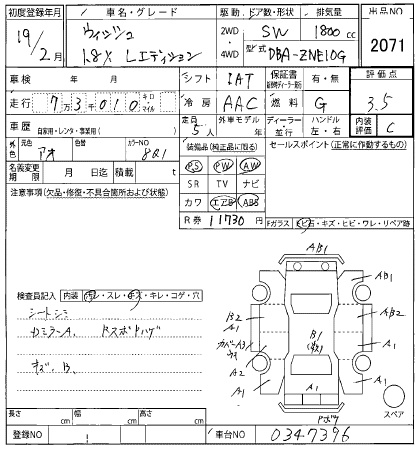 初度登録年月 車名・グレード 駆動 ドア数・形状 排気量 出品NO
19/2月 ウィッシュ 2WD SW 1800cc 2071
1.8X Lエディション 4WD 型式 DBA-ZNE10G
車検 年 月 シフト IAT 保証書 有・無 評価点
走行 73010 キロ・マイル 冷房 AAC 燃料 G 3.5
車歴 自家用・レンタ・事業用( ) 定員 5人 外車モデル 年 ディーラー・並行 ハンドル 左・右 内装評価 C
外色 元色 アオ 色替 カラーNO 8Q1 装備品(純正品に限る) セールスポイント(正常に作動するもの)
名義変更期限 月 日迄 積載 t PS PW AW
注意事項(欠品・修復・不具合箇所および状態) SR TV ナビ
カワ エアB ABS
R券 11730 Fガラス・キズ・ヒビ・ワレ・リペア跡
AB1
AB1
検査員記入 内装 汚レ・スレ・キズ・キレ・コゲ・穴
シートシミ
B2 A1 B1 B2 A1
カバーA3
A2 A1
キズ、B、
A1 A1 A1
スペア
長さ cm 幅 cm 高さ cm
登録NO 車台NO 0347396